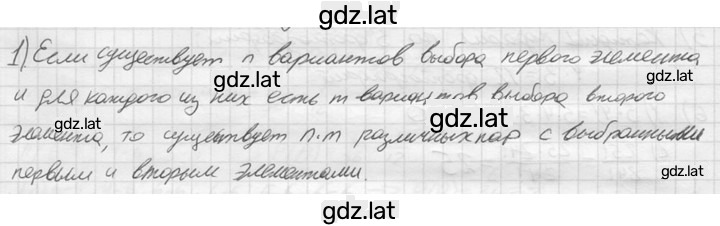 gdz.lat
1) Если существует n вариантов выбора первого элемента
gdz.lat gdz.lat
и для каждого из них есть m вариантов выбора второго
gdz.lat gdz.lat
элемента, то существует n·m различных пар с выбранными
первым и вторым элементами.
gdz.lat gdz.lat
gdz.lat